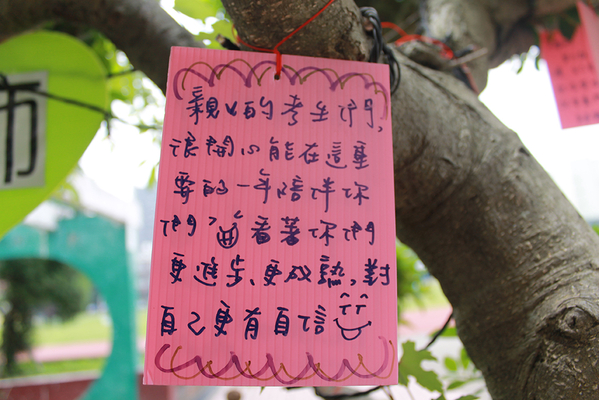 親ㄞ的考生們,
很開心能在這重
要的一年陪伴你
們,看著你們
更進步、更成熟,對
自己更有自信
市